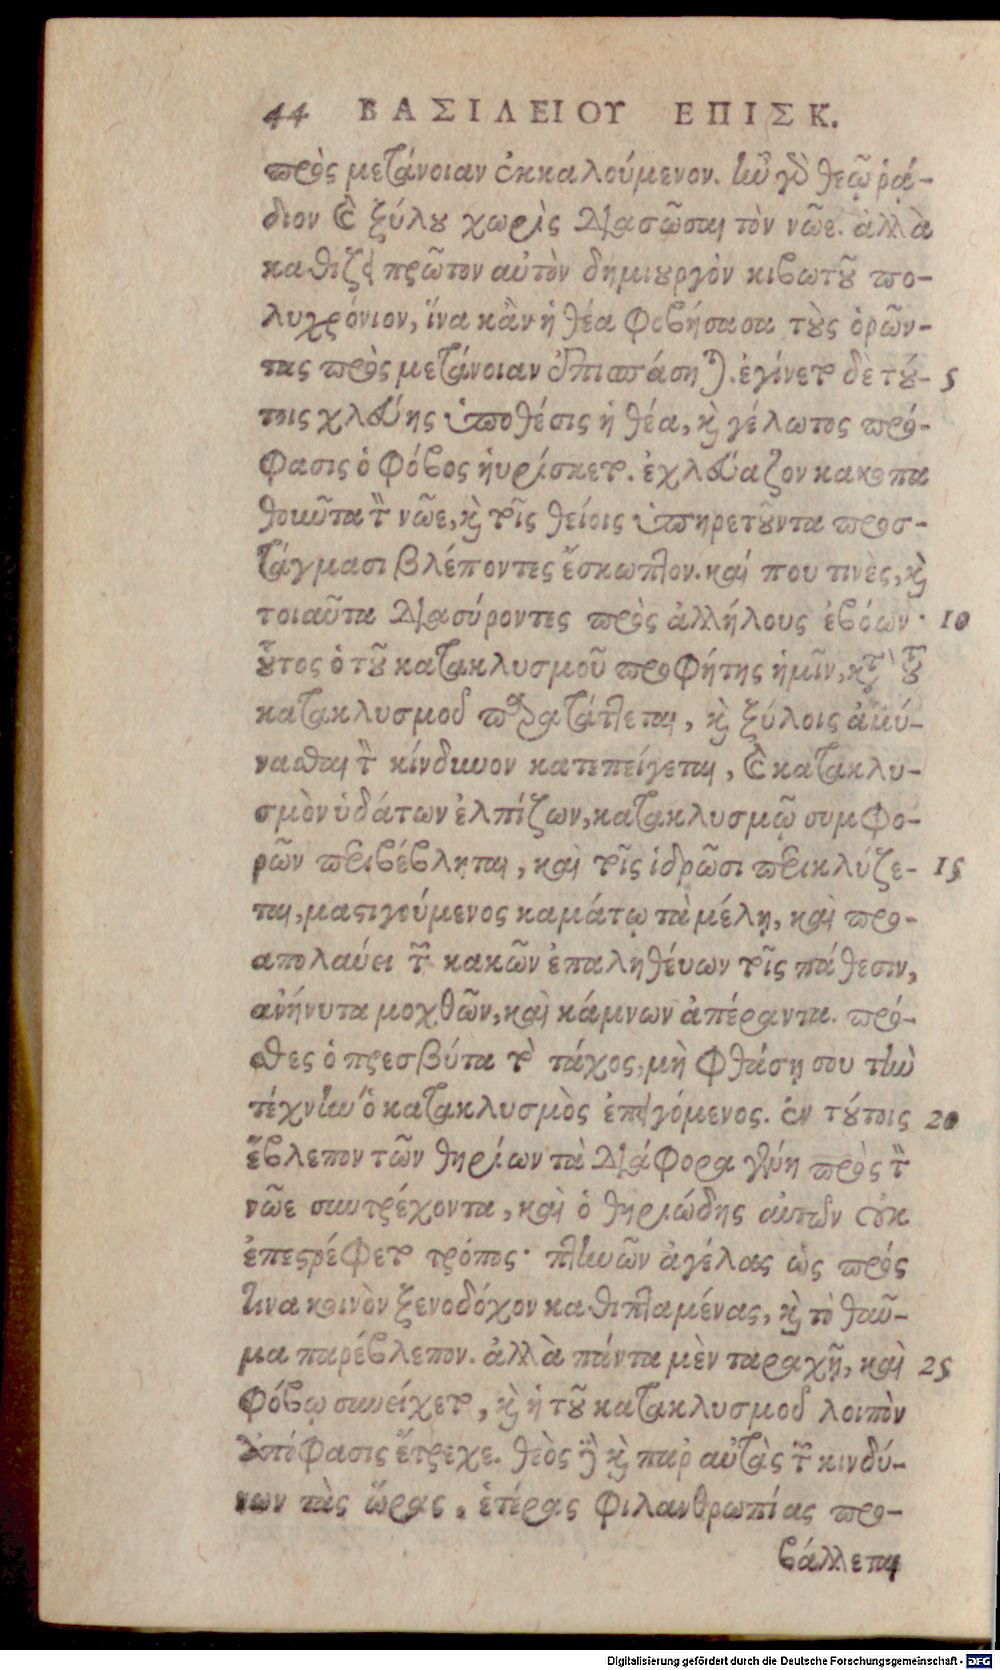 44 ΒΑΣΙΛΕΙΟΥ ΕΠΙΣΚ.
πρὸς μετάνοιαν ἐκκαλούμενον. ἦν γὰρ θεῷ ῥᾴ-
διον καὶ ξύλου χωρὶς διασῶσαι τὸν νῶε. ἀλλὰ
καθίζει πρῶτον αὐτὸν δημιουργὸν κιβωτοῦ πο-
λυχρόνιον, ἵνα κἂν ἡ θέα φοβήσασα τοὺς ὁρῶν-
τας πρὸς μετάνοιαν ἐπισπάσηται. ἐγίνετο δὲ τού- 5
τοις χλεύης ὑποθέσις ἡ θέα, καὶ γέλωτος πρό-
φασις ὁ φόβος ηὑρίσκετο. ἐχλεύαζον κακοπα
θοῦντα τὸν νῶε, καὶ τοῖς θείοις ὑπηρετοῦντα προσ-
τάγμασι βλέποντες ἔσκωπτον. καί που τινὲς, καὶ
τοιαῦτα διασύροντες πρὸς ἀλλήλους ἐβόων· 10
οὗτος ὁ τοῦ κατακλυσμοῦ προφήτης ἡμῖν, κατὰ τοῦ
κατακλυσμοῦ παρατάττεται, καὶ ξύλοις ἀμύ-
νασθαι τὸν κίνδυνον κατεπείγεται, καὶ κατακλυ-
σμὸν ὑδάτων ἐλπίζων, κατακλυσμῷ συμφο-
ρῶν περιβέβληται, καὶ τοῖς ἱδρῶσι περικλύζε- 15
ται, μαστιγούμενος καμάτῳ τὰ μέλη, καὶ προ-
απολαύει τῶν κακῶν ἐπαληθέυων τοῖς πάθεσιν,
ἀνήνυτα μοχθῶν, καὶ κάμνων ἀπέραντα. πρό-
σθες ὁ πρεσβύτα τὸ τάχος, μὴ φθάσῃ σου τὴν
τέχνην ὁ κατακλυσμὸς ἐπειγόμενος. ἐν τούτοις 20
ἔβλεπον τῶν θηρίων τὰ διάφορα γένη πρὸς τὸν
νῶε συντρέχοντα, καὶ ὁ θηριώδης αὐτῶν οὐκ
ἐπεστρέφετο τρόπος· πτηνῶν ἀγέλας ὡς πρός
τινα κοινὸν ξενοδόχον καθιπταμένας, καὶ τὸ θαῦ-
μα παρέβλεπον. ἀλλὰ πάντα μὲν ταραχῇ, καὶ 25
φόβῳ συνείχετο, καὶ ἡ τοῦ κατακλυσμοῦ λοιπὸν
ἀπόφασις ἔτρεχε. θεὸς δὲ καὶ παρ αὐτὰς τῶν κινδύ-
νων τὰς ὥρας, ἑτέρας φιλανθρωπίας προ-
βάλλεται
Digitalisierung gefördert durch die Deutsche Forschungsgemeinschaft - DFG